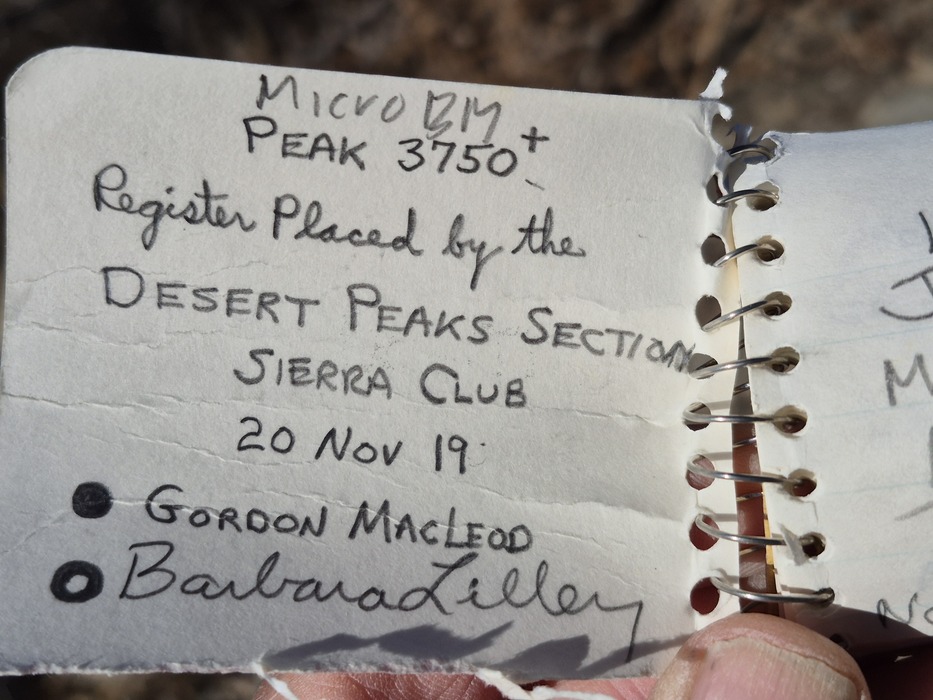 Micro BM
PEAK 3750+
Register Placed by the
DESERT PEAKS SECTION
SIERRA CLUB
20 Nov 19
GORDON MACLEOD
Barbara Lilley